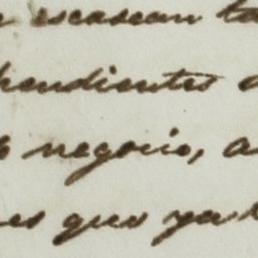 escasean ta
pendientes
negocio, a
es que ya